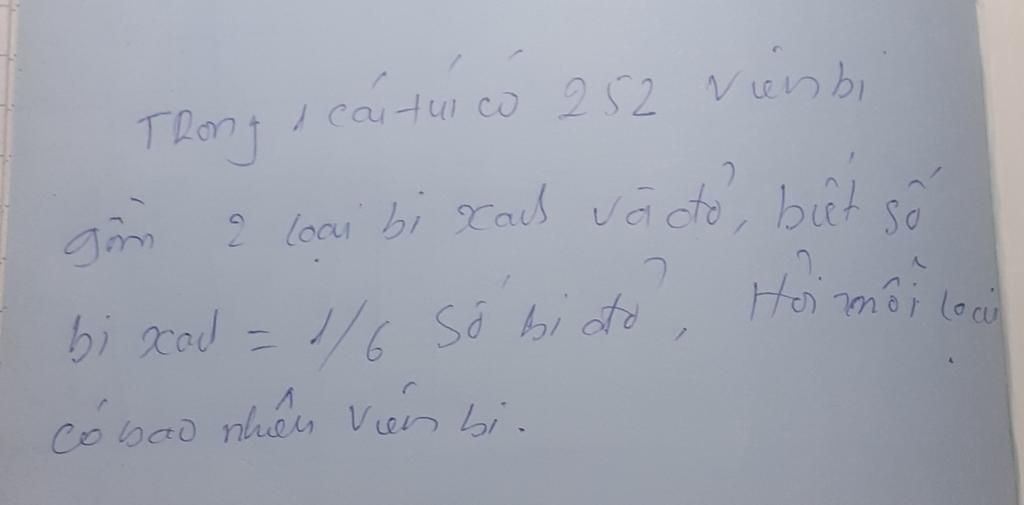 Trong 1 cái túi có 252 viên bi
gồm 2 loại bi xanh và đỏ, biết số
bi xanh = 1/6 số bi đỏ, Hỏi mỗi loại
có bao nhiêu viên bi.